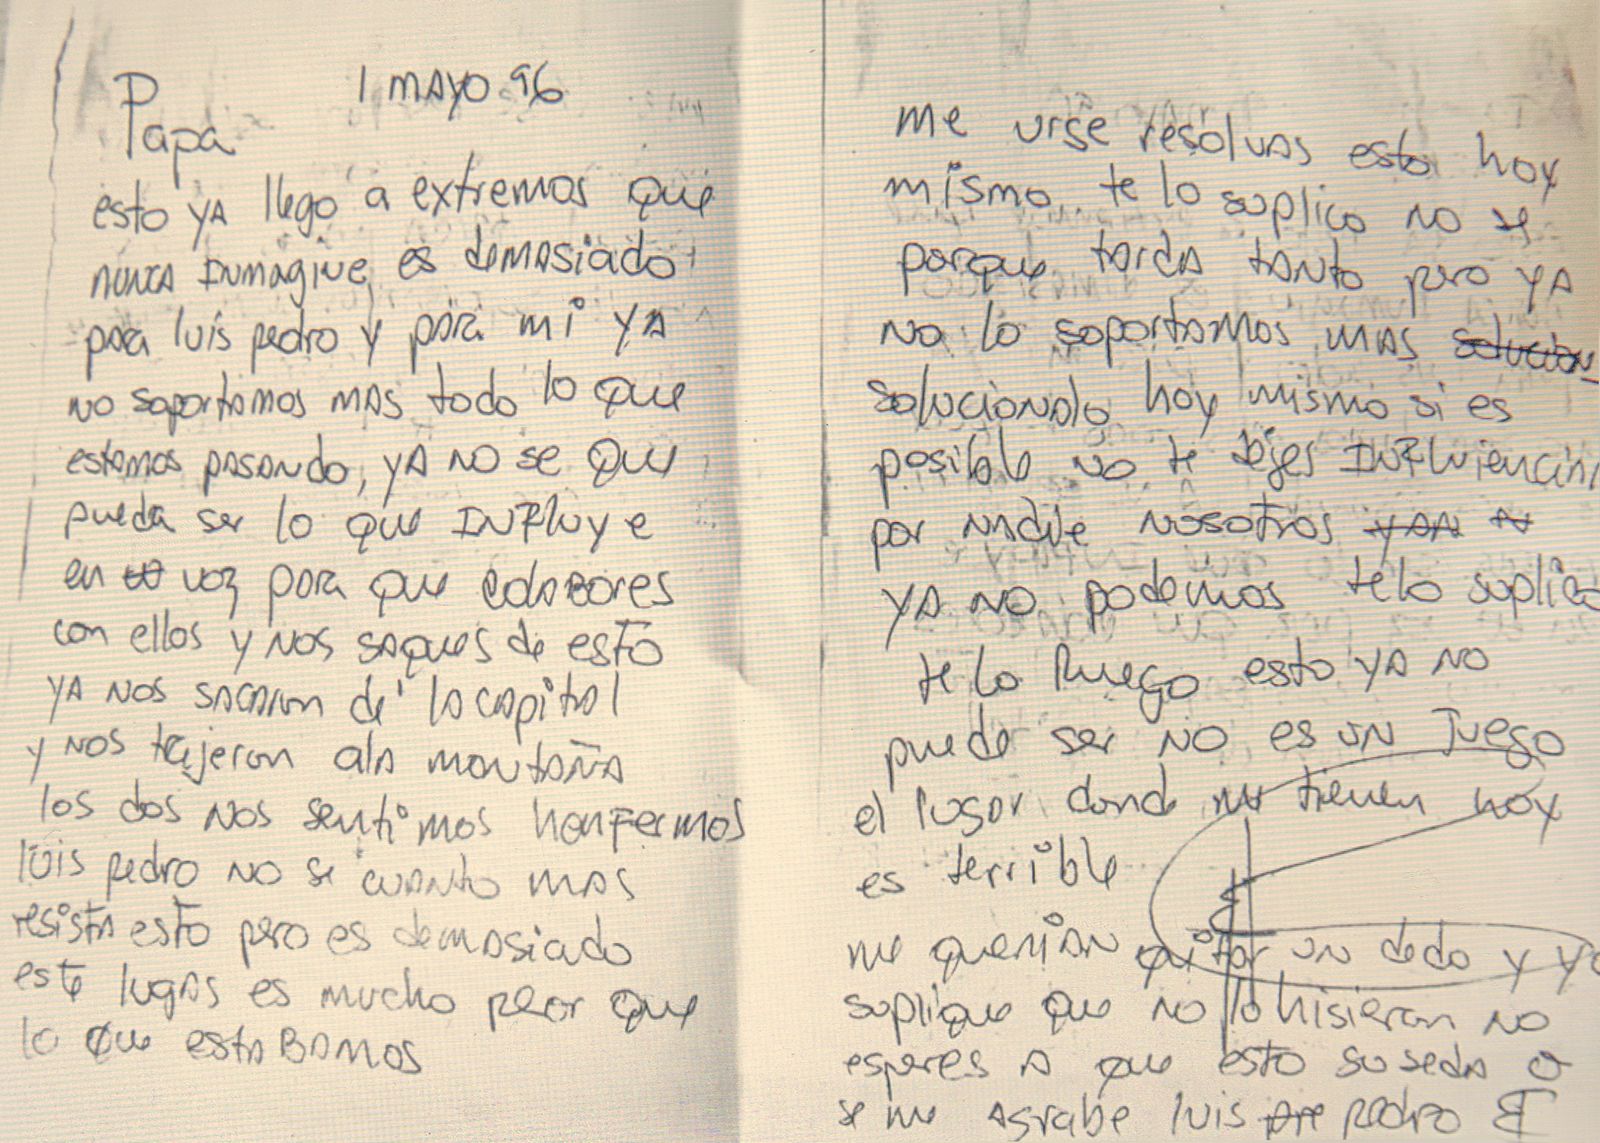 1 MAYO 96
Papa
esto YA llego a extremos que
nunca Inmagine, es demasiado
para luis pedro y para mi YA
no soportamos mas todo lo que
estamos pasando, YA no se que
pueda ser lo que INFluye
en voz para que colabores
con ellos y nos saques de esto
YA nos sacaron de la capital
y nos trajeron ala montaña
los dos nos sentimos henfermos
luis pedro no se cuanto mas
resista esto pero es demasiado
este lugas es mucho peor que
lo que estabamos
me urse resolvas esto hoy
mismo, te lo suplico no se
porque tarda tanto pero YA
no lo soportamos mas solucion
solucionalo hoy mismo si es
posible no te dejes
por nadie nosotros
YA no podemos telo suplico
te lo Ruego esto YA no
puede ser no es un Juego
el lugar donde me tienen hoy
es terrible
me querian quitar un dedo y yo
suplique que no lo hisieron no
esperes a que esto suseda o
se me agrabe luis pedro